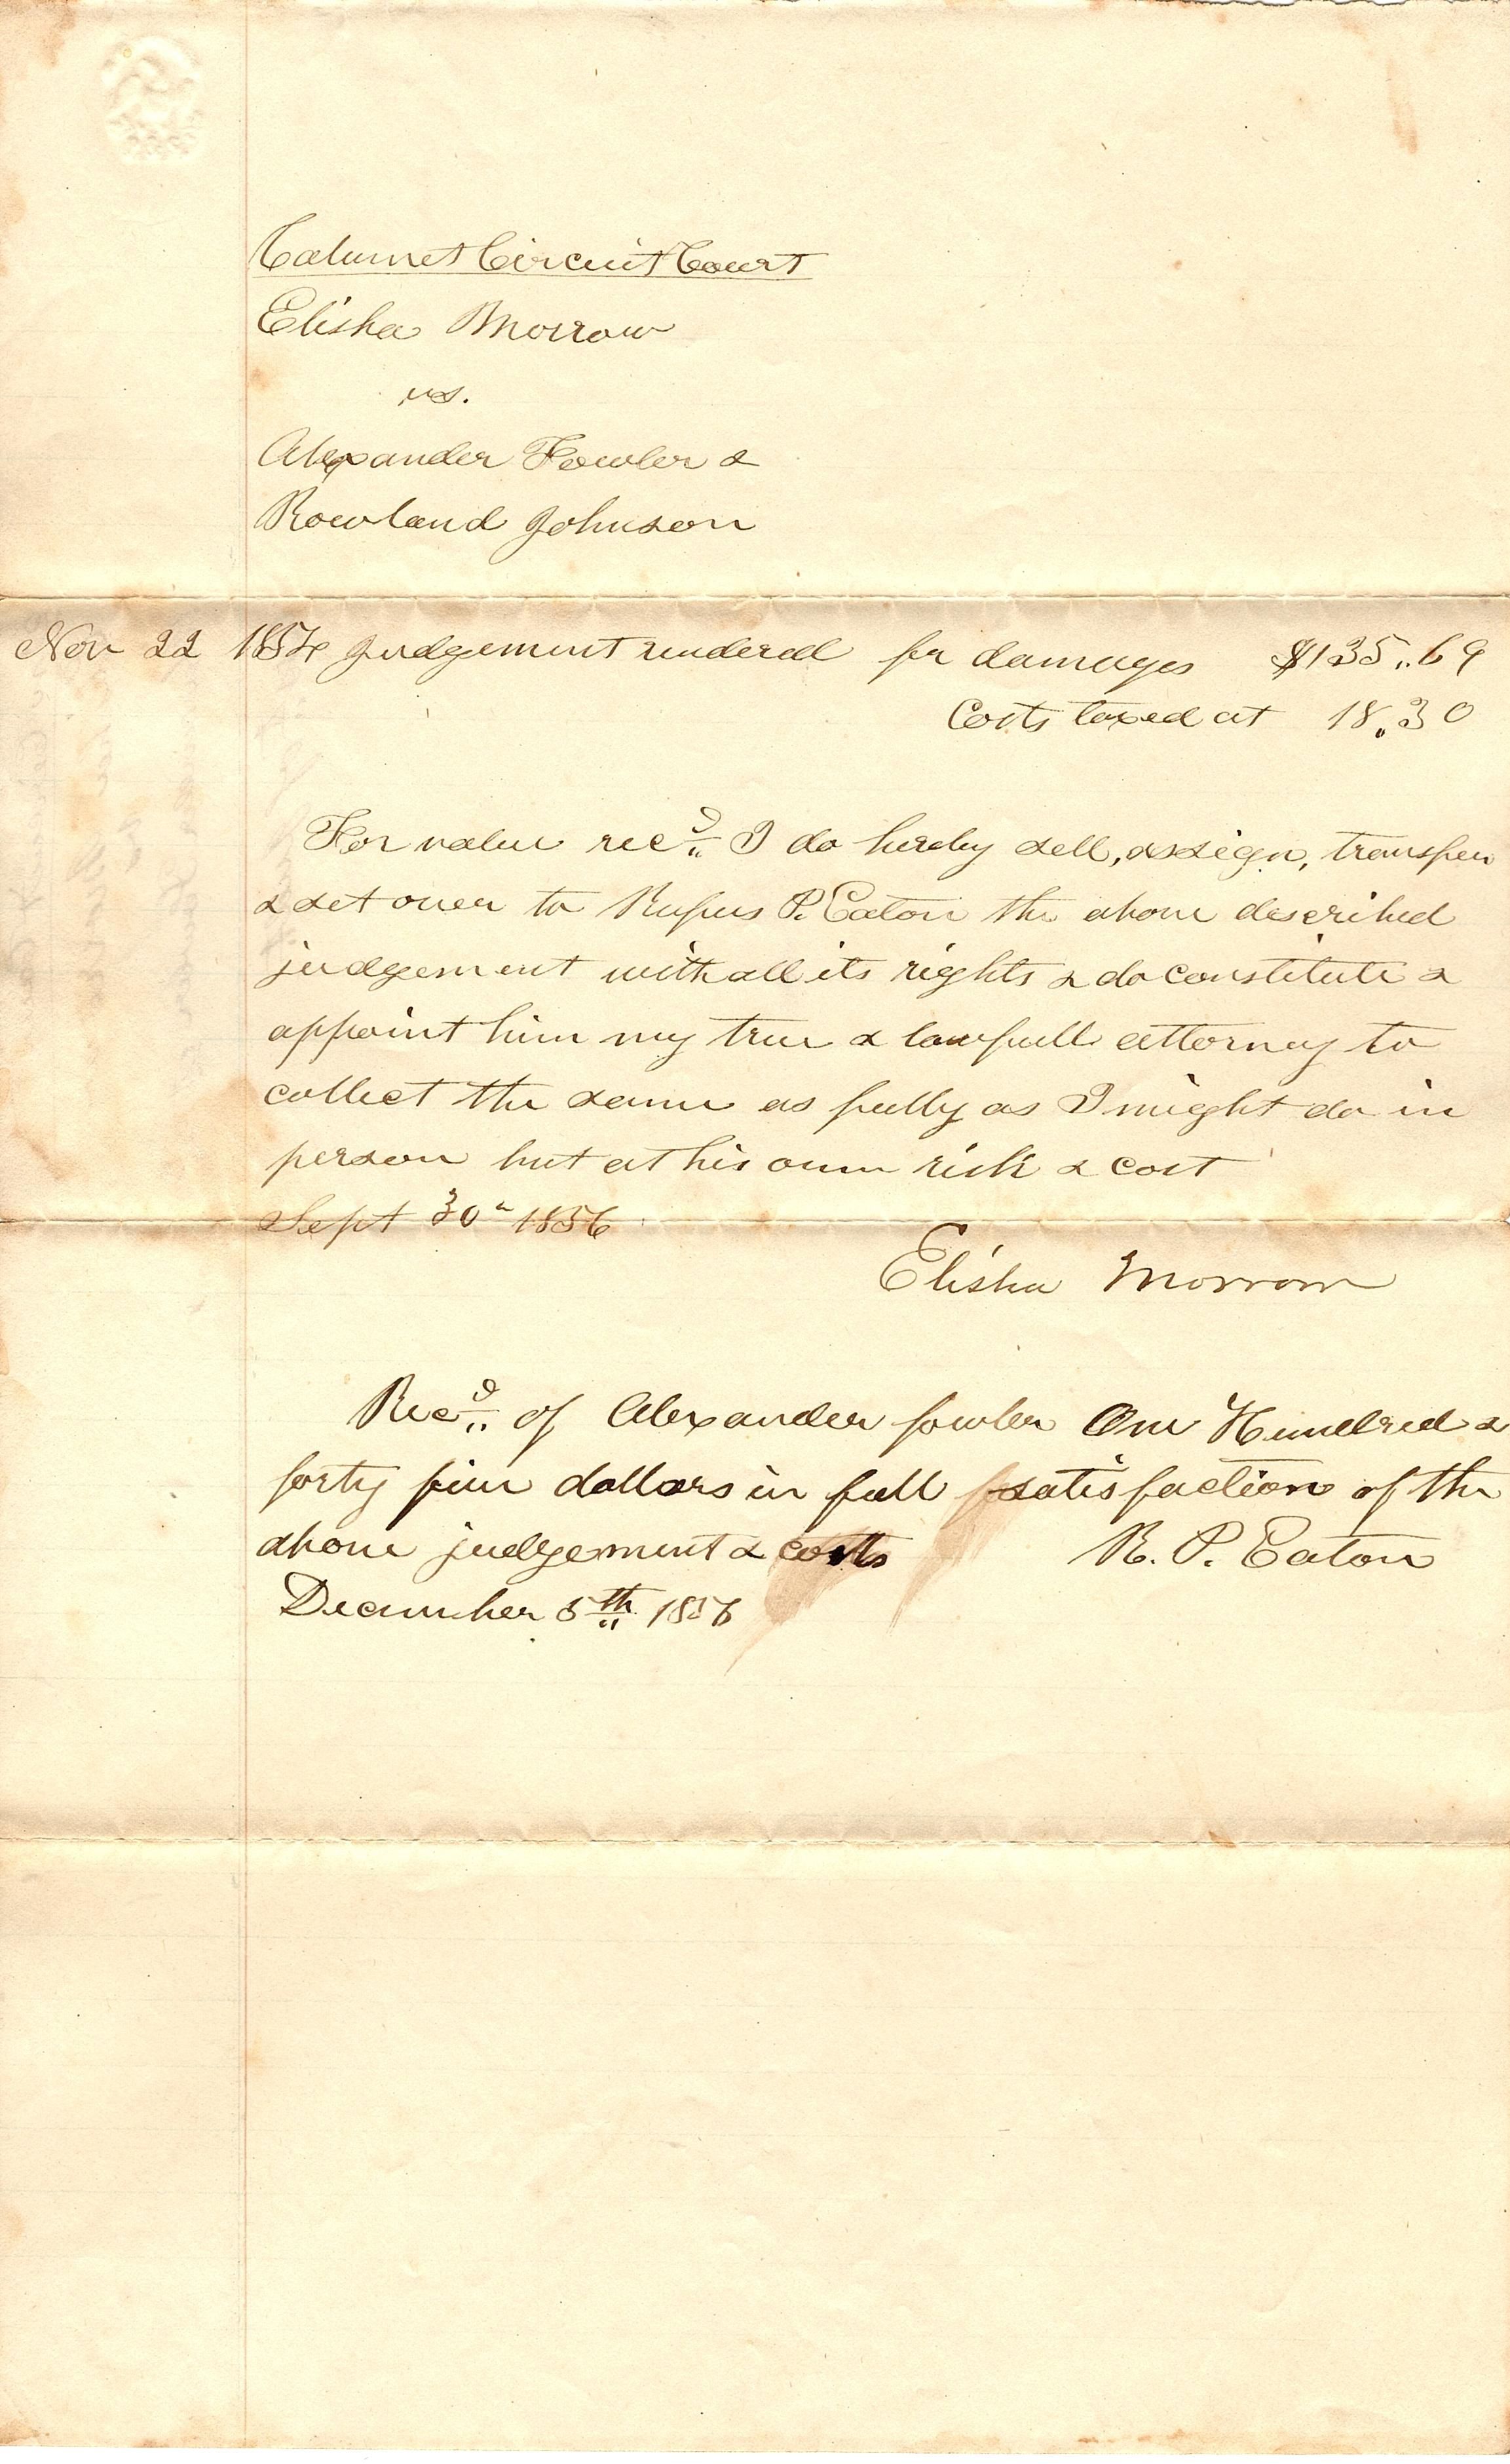 Calumet Circuit Court
Elisha Morrow
vs.
Alexander Fowler &
Rowland Johnson
Nov 22 1854 Judgement rendered for damages $135.69
Costs taxed at 18.30
For value recd I do hereby sell, assign, transfer
& set over to Rufus P. Eaton the above described
judgement with all its rights & do constitute &
appoint him my true & lawfull attorney to
collect the same as fully as I might do in
person but at his own risk & cost
Sept 30th 1856
Elisha Morrow
Recd of Alexander fowler One Hundred &
forty five dollars in full satisfaction of the
above judgement & costs R. P. Eaton
December 5th 1856